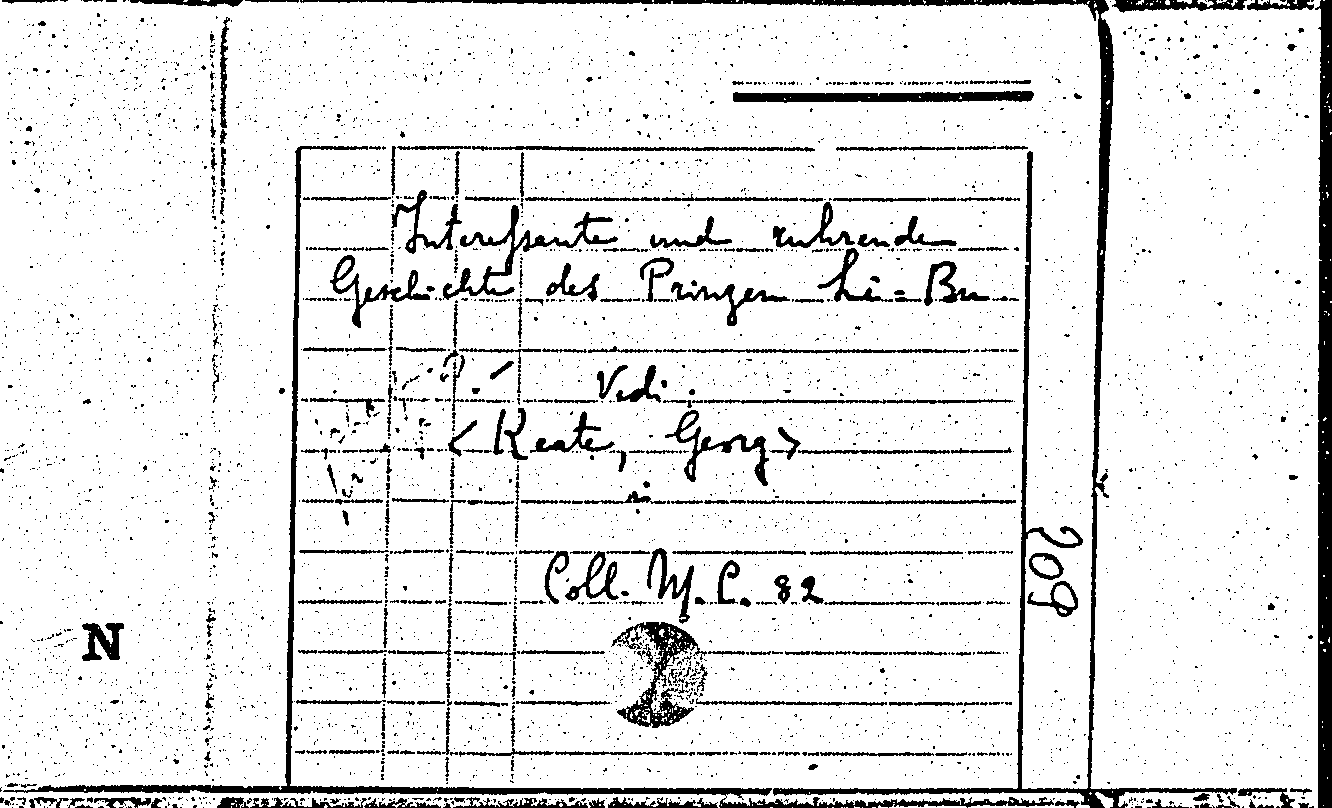 Interessante und ruhrende
Geschichte des Prinzen Li=Bu.
Vedi:
<Keate, Georg>
Coll. M. C. 82
209
N